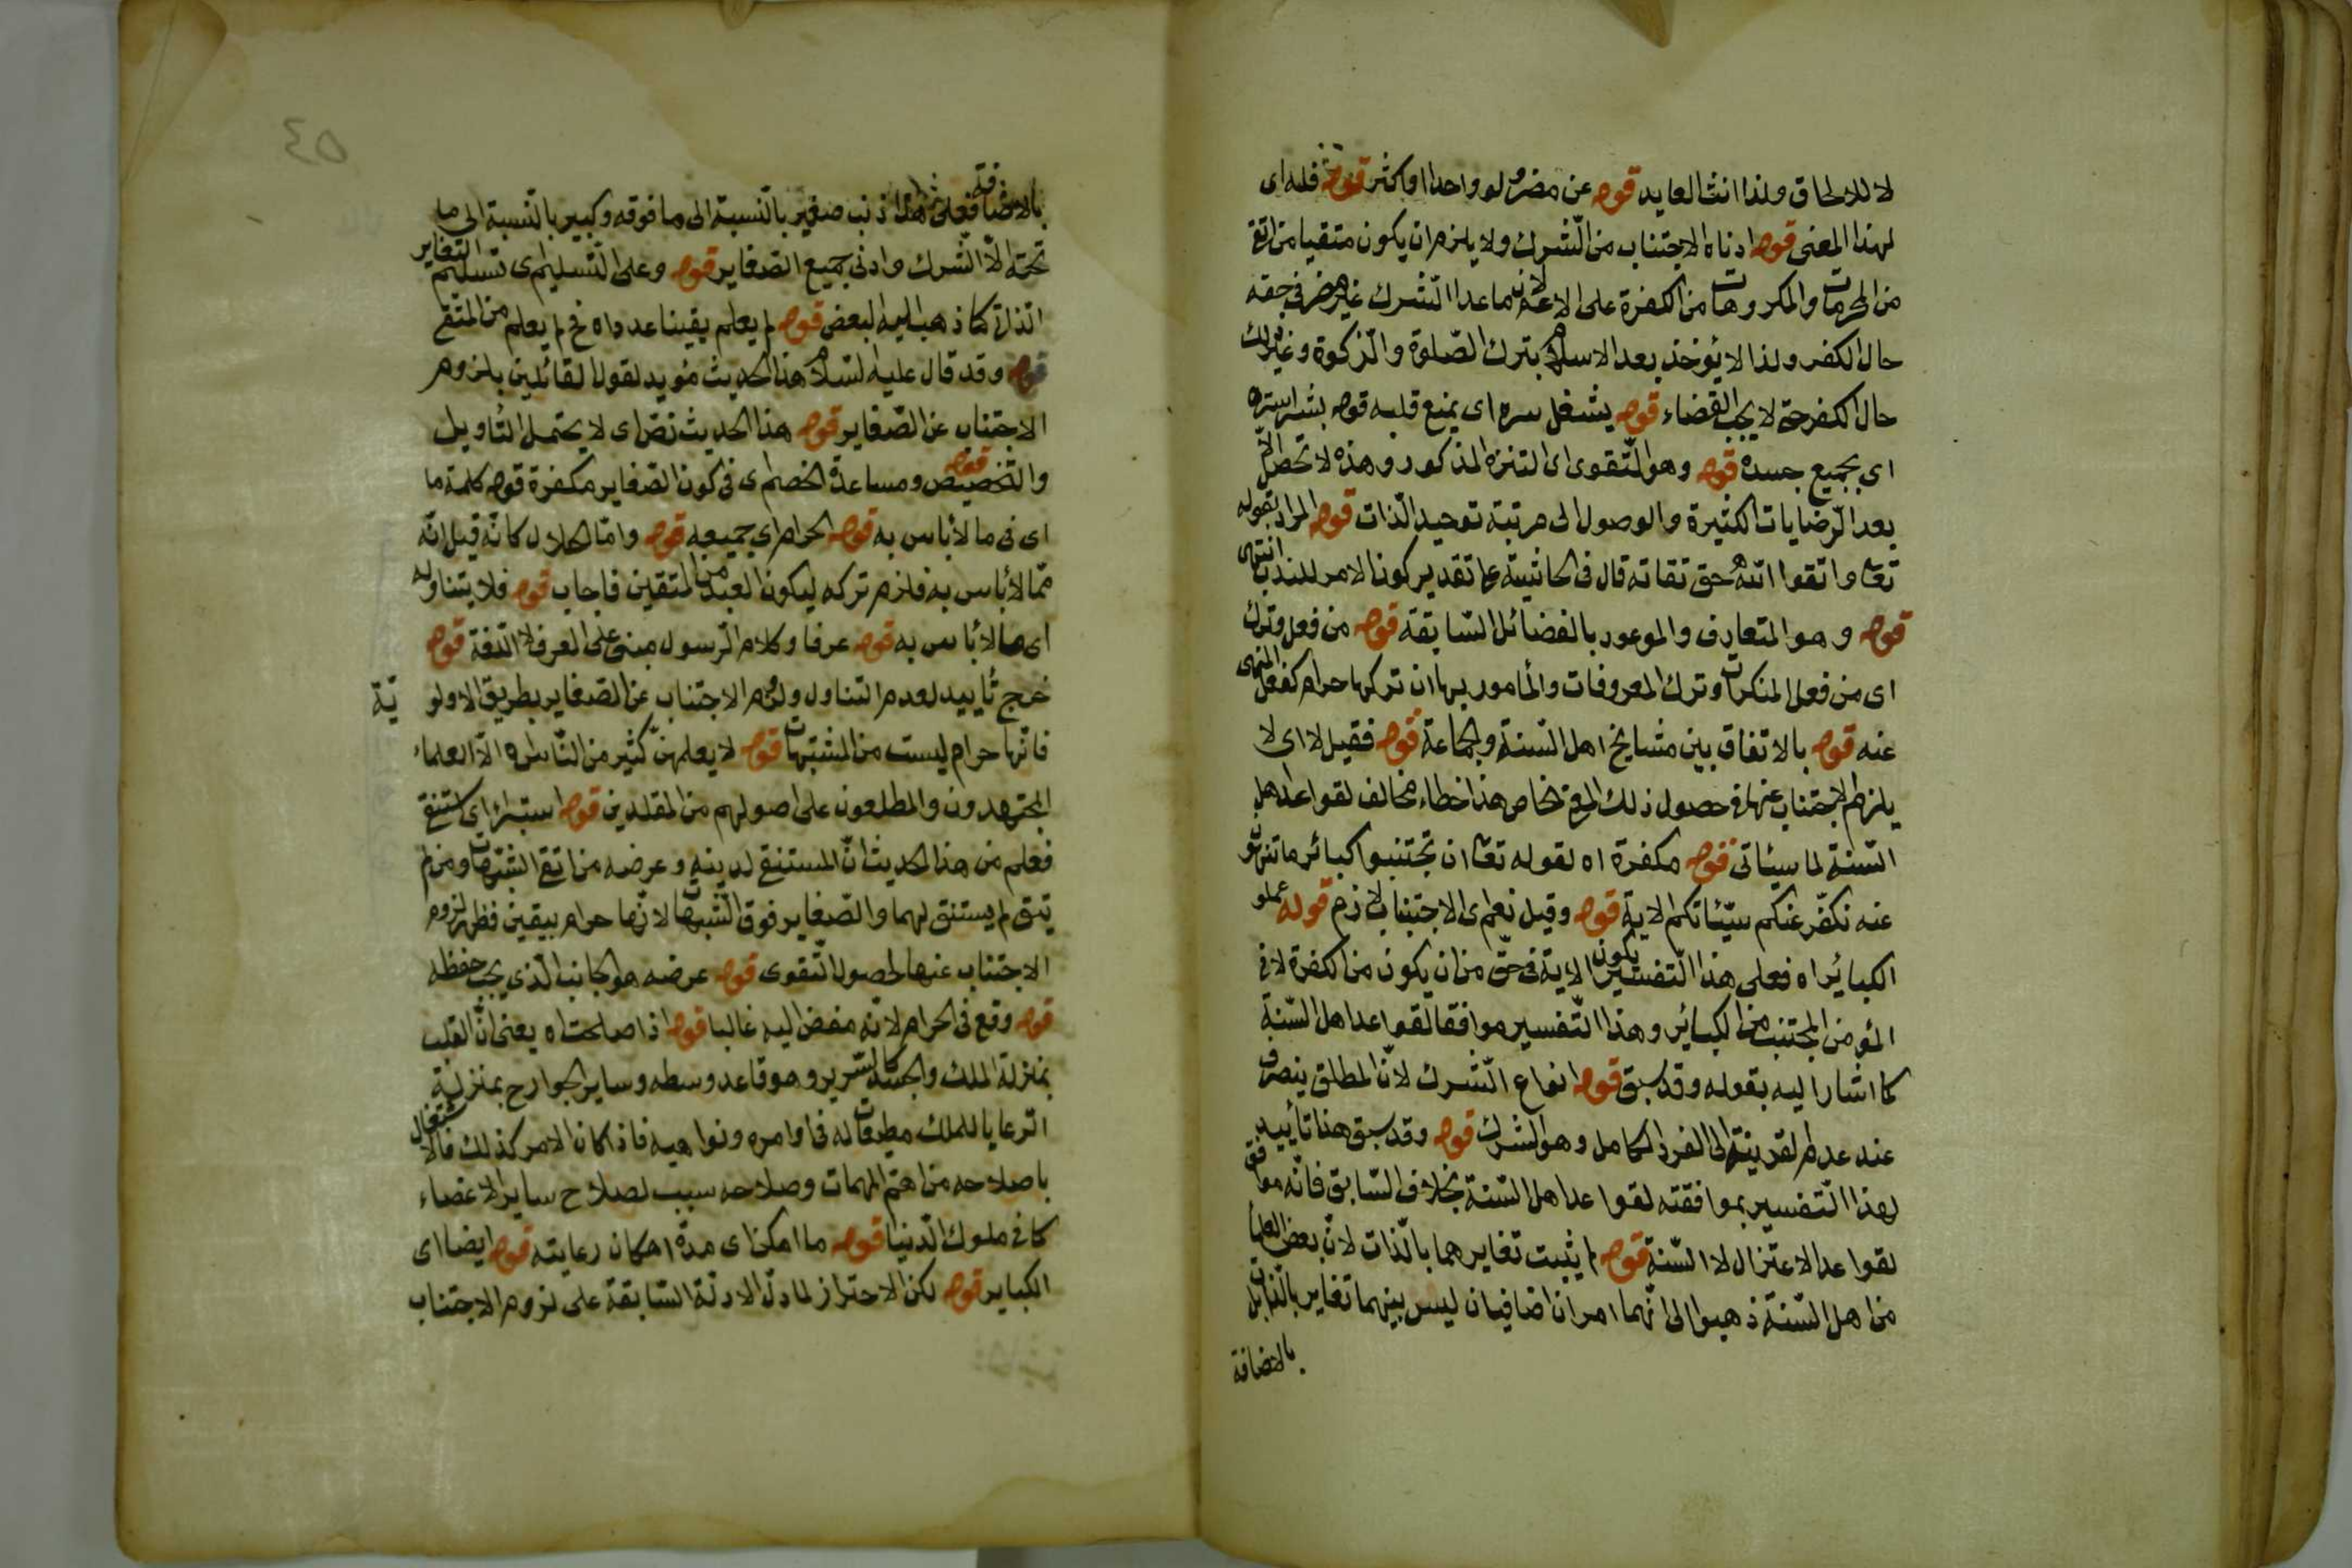 لا للالحاق ولذا انث العايد قوله عن مضر ولو واحدا او كثر قوله فله اى
لهذا المعنى قوله ادناه الاجتناب من الشرك ولا يلزم ان يكون متقيا من اتقى
من المحرمات والمكروهات من الكفرة على الاعم لان ما عدا الشرك غير مضر فى حقه
حال الكفر ولذا لا يؤخذ بعد الاسلام بترك الصلوة والزكوة وغير ذلك
حال الكفر حتى لا يجب القضاء قوله يشغل سره اى يمنع قلبه قوله بشراشره
اى بجميع جسده قوله وهو التقوى اى التنزه المذكور وهذه لا تحصل الا
بعد الرضايات الكثيرة والوصول الى مرتبة توحيد الذات قوله المراد بقوله
تعا واتقوا الله حق تقاته قال فى الحاشية على تقدير كون الامر للندب انتهى
قوله وهو المتعارف والموعود بالفضائل السابقة قوله من فعل وترك
اى من فعل المنكرات وترك المعروفات والمأمور بها ان تركها حرام كفعل المنهى
عنه قوله بالاتفاق بين مشايخ اهل السنة والجماعة قوله فقيل لا اى لا
يلزم الاجتناب عنها فى حصول ذلك هذا خطاء مخالف لقواعد اهل
السنة لما سيئاتى قوله مكفرة اه لقوله تعا ان تجتنبوا كبائر ما تنهون
عنه نكفر عنكم سيئاتكم الاية قوله وقيل نعم اى الاجتناب لازم قوله عملو
الكبائر اه فعلى هذا التفسير يكون الاية فى حق من ان يكون من الكفرة لا فى
المؤمن المجتنب من الكبائر وهذا التفسير موافقا لقواعد اهل السنة
كما اشار اليه بقوله وقد سبق قوله انواع الشرك لان المطلق ينصرف
عند عدم القرينة الى الفرد الكامل وهو الشرك قوله وقد سبق هنا تأييد
لهذا التفسير بموافقته لقواعد اهل السنة بخلاف السابق فانه موافق
لقواعد الاعتزال لا السنة قوله لم يثبت تغايرهما بالذات لان بعض العلماء
من اهل السنة ذهبوا الى انهما امران اضافيان ليس بينهما تغاير بالذات بل
بالاضافة
٥٤
بالاضافة فعلى هذا ذنب صغير بالنسبة الى ما فوقه وكبير بالنسبة الى ما
تحته الا الشرك وادنى جميع الصغاير قوله وعلى التسليم اى تسليم التغاير
الذات كما ذهب اليه البعض قوله لم يعلم يقينا عدم اه فح لم يعلم من المتقى
قوله وقد قال عليه السلام هذا الحديث مؤيد لقول القائلين بلزوم
الاجتناب عن الصغاير قوله هذا الحديث نص اى لا يحتمل التأويل
والتخصيص قوله ومساعدة الخصم اى فى كون الصغاير مكفرة قوله كلمة ما
اى فى ما لا بأس به قوله الحرام اى جميعه قوله واما الحلال كانه قيل انه
مما لا بأس به فلزم تركه ليكون العبد من المتقين فاجاب قوله فلا يتناوله
اى ما لا بأس به قوله عرفا وكلام الرسول مبنى على العرف لا اللغة قوله
خرج تأييد لعدم التناول ولزوم الاجتناب عن الصغاير بطريق الاولوية
فانها حرام ليست من المشتبهات قوله لا يعلمهن كثير من الناس اه الا العلماء
المجتهدون والمطلعون على اصولهم من المقلدين قوله استبرأ اى استنقى
فعلم من هذا الحديث ان المستنقى لدينه وعرضه من اتقى الشبهات ومن لم
يتق لم يستنق لهما والصغاير فوق الشبهات لانها حرام بيقين فظهر لزوم
الاجتناب عنها لحصول التقوى قوله عرضه هو الجانب الذى يجب حفظه
قوله وقع فى الحرام لانه مفض اليه غالبا قوله اذا صلحت اه يعنى ان القلب
بمنزلة الملك والجثة كالسرير وهو قاعد وسطه وساير الجوارح بمنزلة
الرعايا للملك مطيعات له فى اوامره ونواهيه فاذا كان الامر كذلك فالاشتغال
باصلاحه من اهم المهمات وصلاحه سبب لصلاح ساير الاعضاء
كما فى ملوك الدنيا قوله ما امكن اى مدة امكان رعايته قوله ايضا اى
الكباير قوله لكن الاحتراز لما دل الادلة السابقة على لزوم الاجتناب